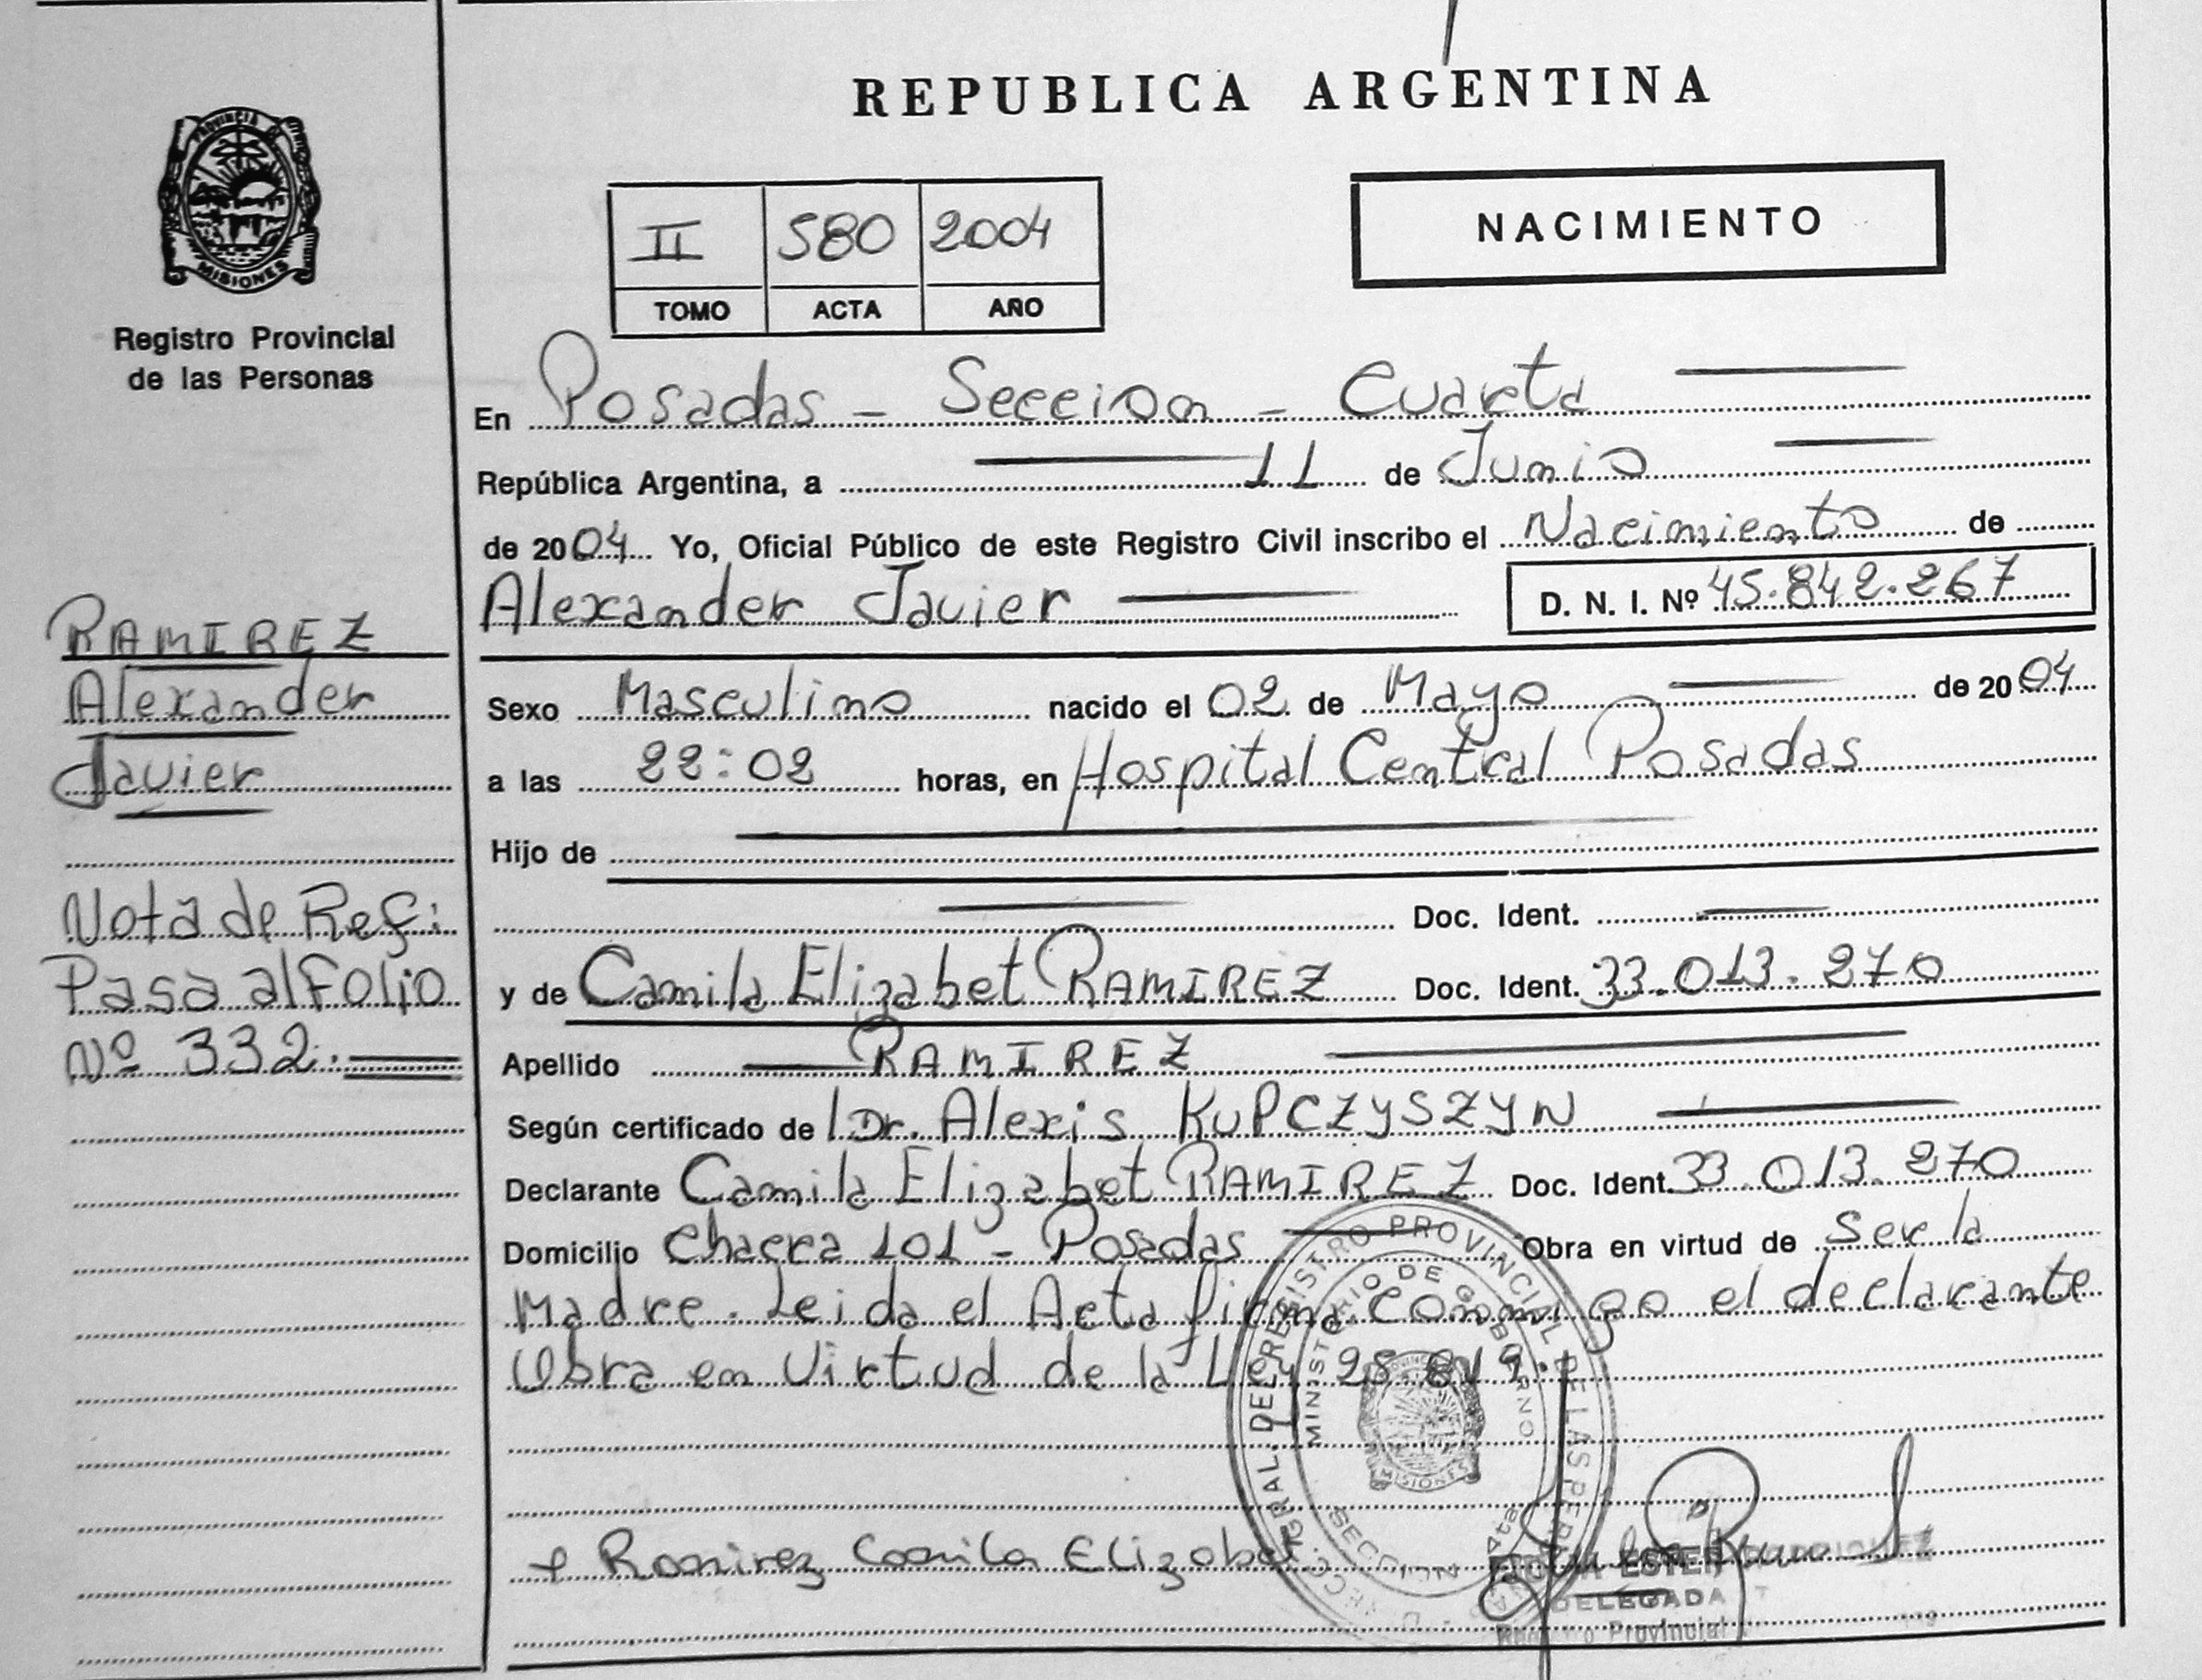 PROVINCIA DE
MISIONES
Registro Provincial
de las Personas
RAMIREZ
Alexander
Javier
Nota de Ref:
Pasa al Folio
Nº 332.
REPUBLICA ARGENTINA
II 580 2004
TOMO ACTA AÑO
NACIMIENTO
En Posadas - Seccion - Cuarta
República Argentina, a 11 de Junio
de 2004 Yo, Oficial Público de este Registro Civil inscribo el Nacimiento de
Alexander Javier D. N. I. Nº 45.842.267
Sexo Masculino nacido el 02 de Mayo de 2004
a las 22:02 horas, en Hospital Central Posadas
Hijo de
Doc. Ident.
y de Camila Elizabet RAMIREZ Doc. Ident. 33.013.270
Apellido RAMIREZ
Según certificado de Dr. Alexis KUPCZYSZYN
Declarante Camila Elizabet RAMIREZ Doc. Ident. 33.013.270
Domicilio Chacra 101 - Posadas Obra en virtud de Ser la
Madre. Leida el Acta firma conmigo el declarante
Obra en Virtud de la Ley 25.819.
Ramirez Camila Elizabet
REGISTRO PROVINCIAL DE LAS PERSONAS
MINISTERIO DE GOBIERNO
MISIONES
SECCION 4ta
ESTER
DELEGADA
Provincial